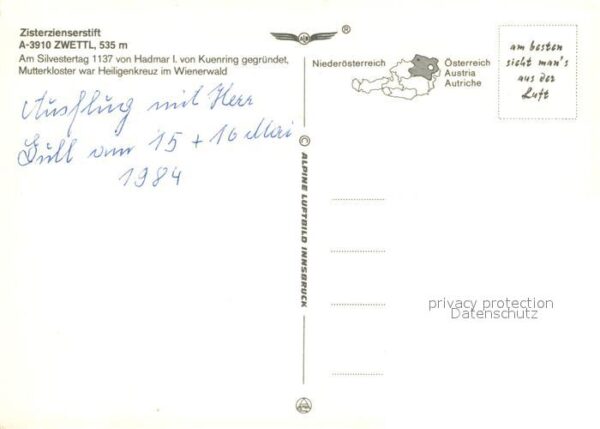 Zisterzienserstift
A-3910 ZWETTL, 535 m
Am Silvestertag 1137 von Hadmar I. von Kuenring gegründet,
Mutterkloster war Heiligenkreuz im Wienerwald
Ausflug mit Herr
vom 15 + 16 Mai
1984
®
Niederösterreich
Österreich
Austria
Autriche
am besten
sieht man's
aus der
Luft
© ALPINE LUFTBILD INNSBRUCK
privacy protection
Datenschutz